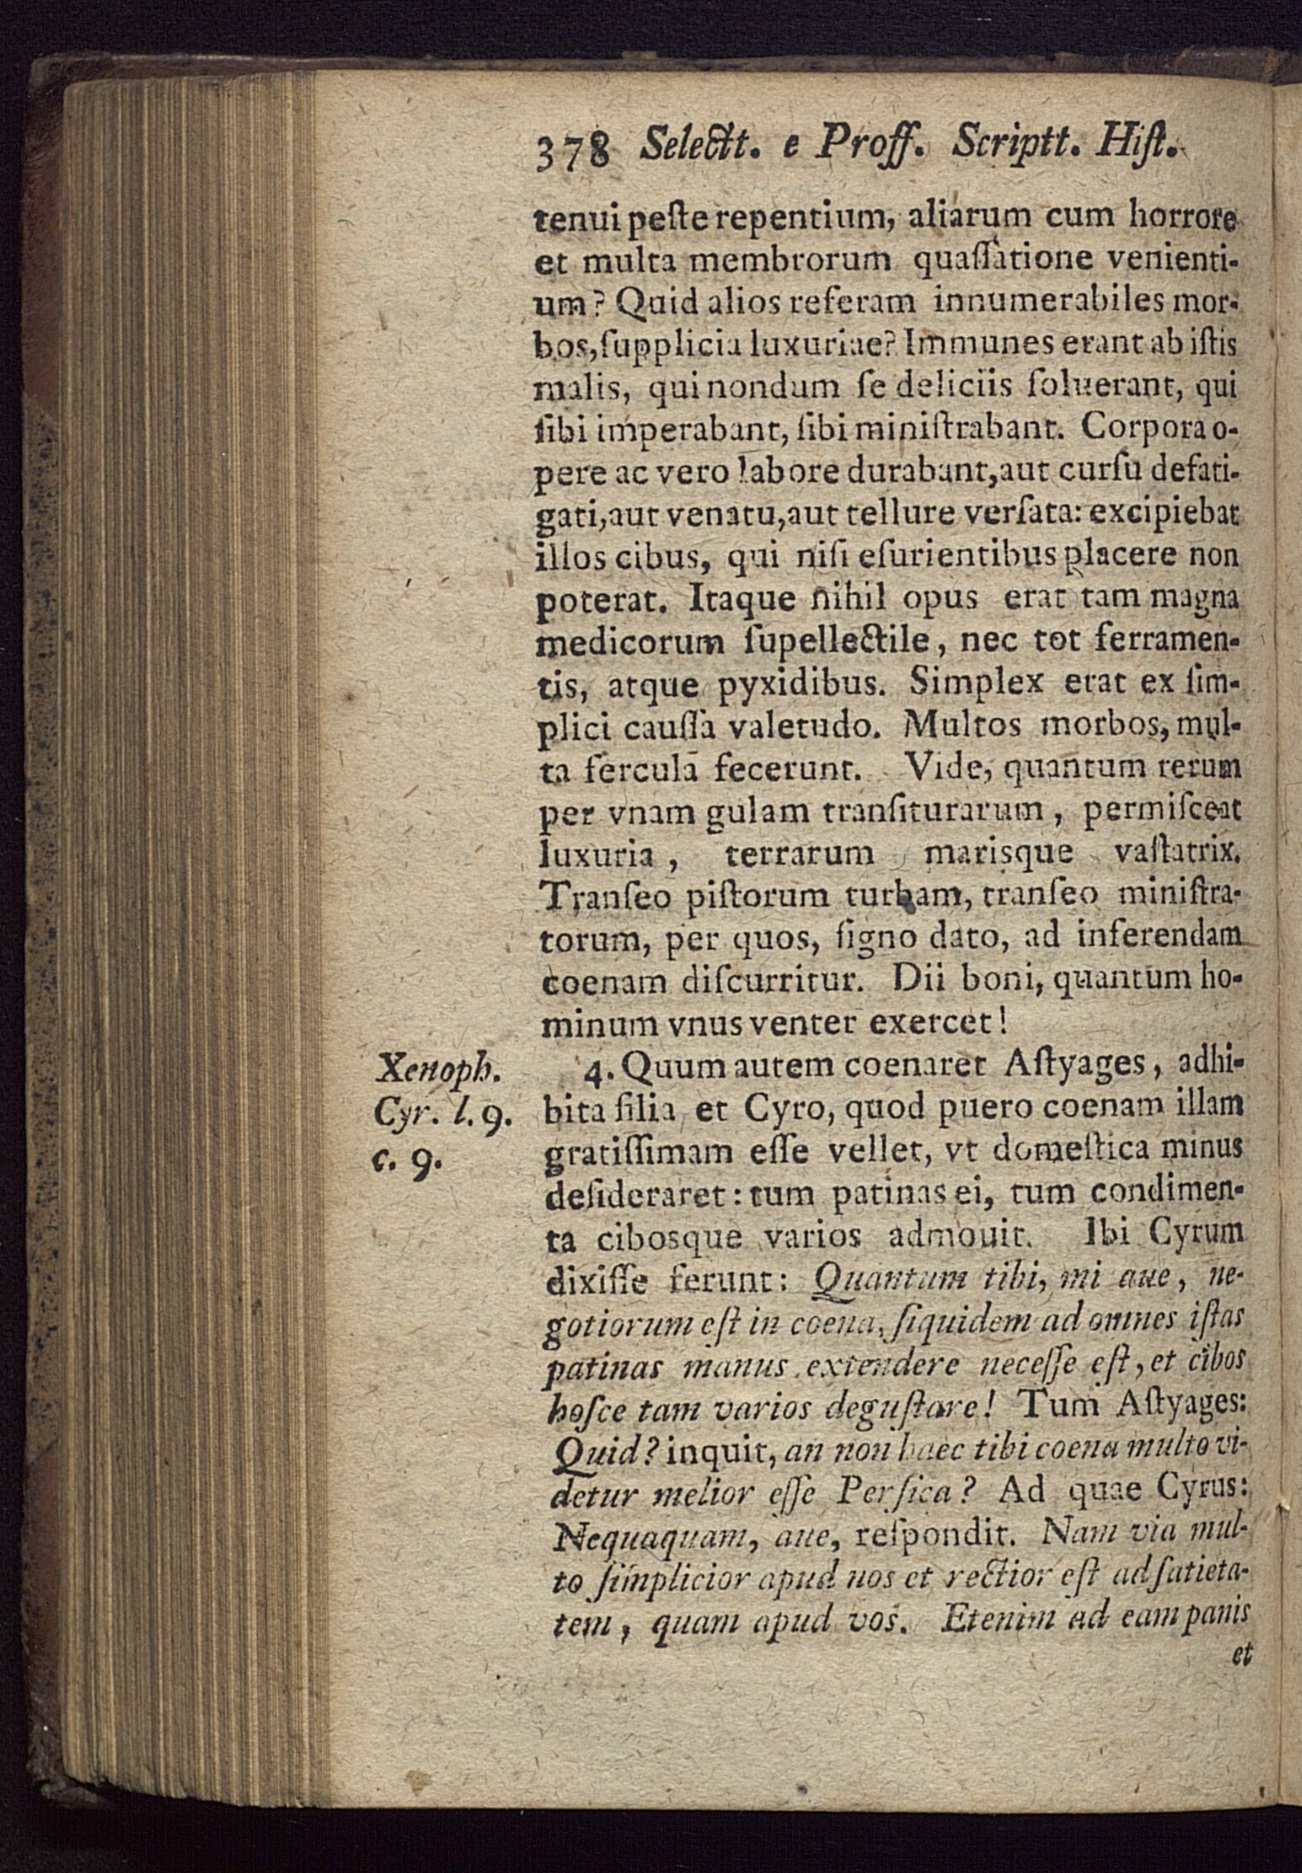 378 Selectt. e Proff. Scriptt. Hiſt.
tenui peſte repentium, aliarum cum horrore
et multa membrorum quaſſatione venienti-
um? Quid alios referam innumerabiles mor-
bos, ſupplicia luxuriae? Immunes erant ab iſtis
malis, qui nondum ſe deliciis ſoluerant, qui
ſibi imperabant, ſibi miniſtrabant. Corpora o-
pere ac vero labore durabant, aut curſu defati-
gati, aut venatu, aut tellure verſata: excipiebat
illos cibus, qui niſi eſurientibus placere non
poterat. Itaque nihil opus erat tam magna
medicorum ſupellectile, nec tot ferramen-
tis, atque pyxidibus. Simplex erat ex ſim-
plici cauſſa valetudo. Multos morbos, mul-
ta fercula fecerunt. Vide, quantum rerum
per vnam gulam tranſiturarum, permiſceat
luxuria, terrarum marisque vaſtatrix.
Tranſeo piſtorum turbam, tranſeo miniſtra-
torum, per quos, ſigno dato, ad inferendam
coenam diſcurritur. Dii boni, quantum ho-
minum vnus venter exercet!
Xenoph.
Cyr. l. 9.
c. 9.
4. Quum autem coenaret Aſtyages, adhi-
bita filia et Cyro, quod puero coenam illam
gratiſſimam eſſe vellet, vt domeſtica minus
deſideraret: tum patinas ei, tum condimen-
ta cibosque varios admouit. Ibi Cyrum
dixiſſe ferunt: Quantum tibi, mi aue, ne-
gotiorum eſt in coena, ſiquidem ad omnes iſtas
patinas manus extendere neceſſe eſt, et cibos
hoſce tam varios deguſtare! Tum Aſtyages:
Quid? inquit, an non haec tibi coena multo vi-
detur melior eſſe Perſica? Ad quae Cyrus:
Nequaquam, aue, reſpondit. Nam via mul-
to ſimplicior apud nos et rectior eſt ad ſatieta-
tem, quam apud vos. Etenim ad eam panis
et